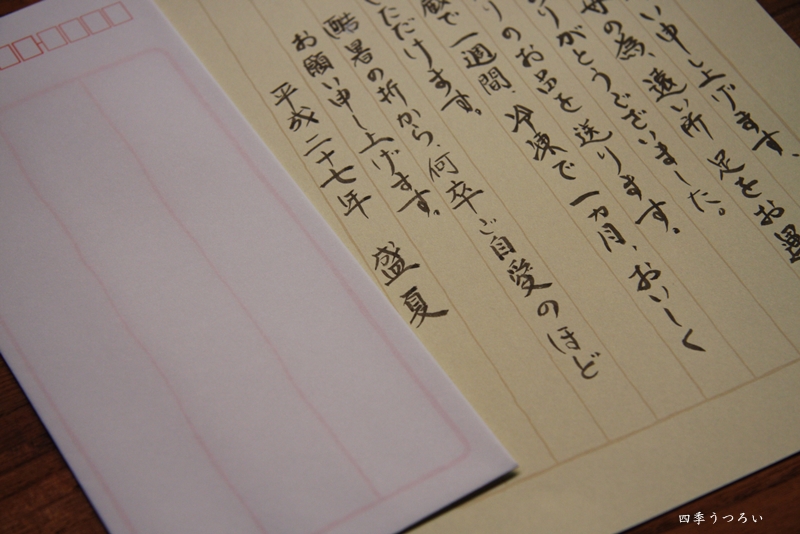 い申し上げます、
の為、遠い所 足をお運
ありがとうございました。
りのお品を 送ります。
蔵で一週間、冷凍で 一カ月、おいしく
ただけます。
酷暑の折から、何卒ご自愛のほど
お願い申し上げます。
平成二十七年 盛夏
四季うつろい